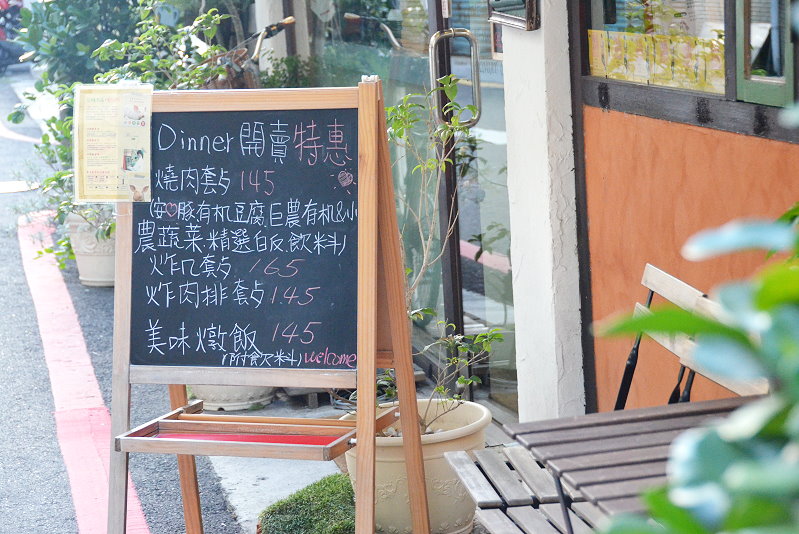 Dinner 開賣特惠
燒肉套占 145
(安♡豚.有机豆腐.巨農有机&小
農蔬菜.精選白飯.飲料)
炸几套占 165
炸肉排套占 145
美味燉飯 145
(附飲料) welcome